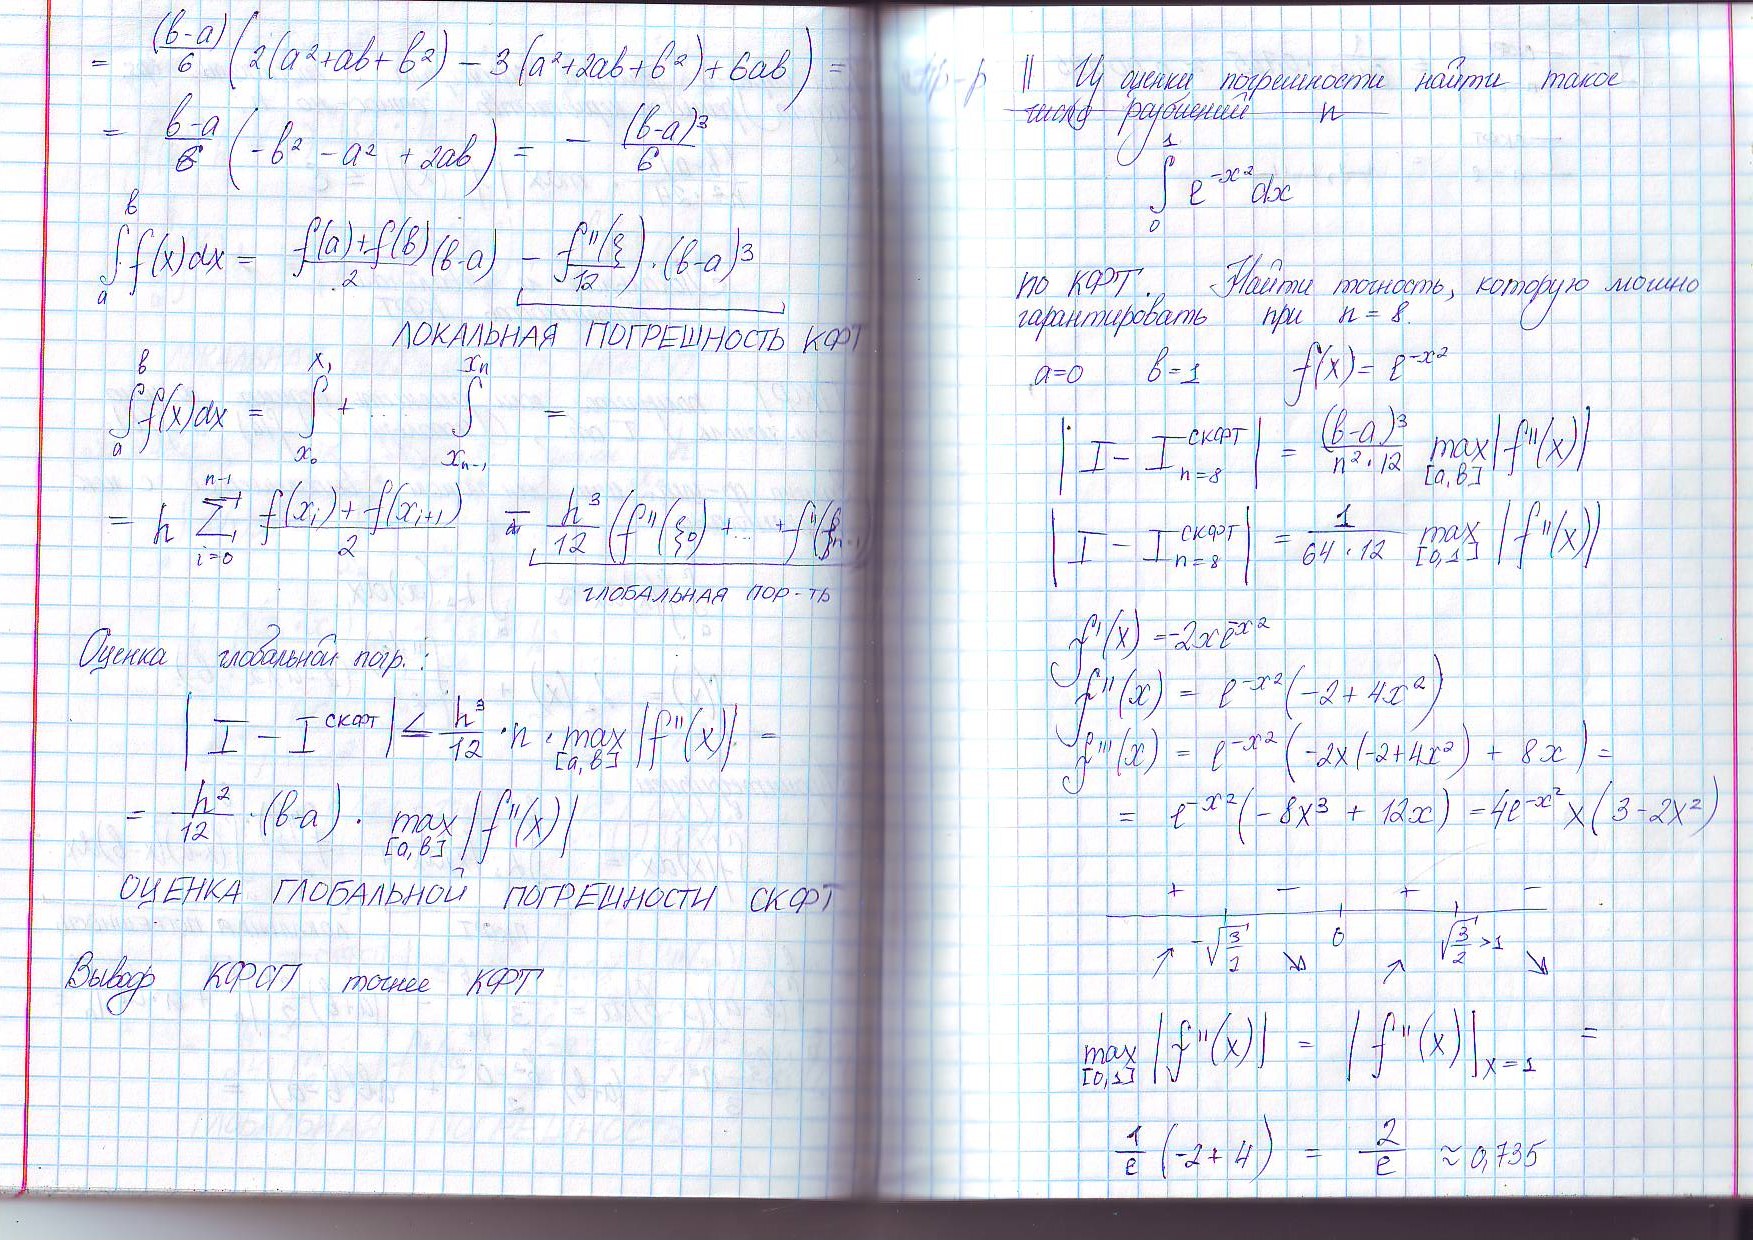 = (b-a)/6 (2(a²+ab+b²) - 3(a²+2ab+b²) + 6ab) =
= (b-a)/6 (-b² - a² + 2ab) = - (b-a)³/6
∫ₐᵇ f(x)dx = (f(a)+f(b))/2 (b-a) - f''(ξ)/12 · (b-a)³
ЛОКАЛЬНАЯ ПОГРЕШНОСТЬ КФТ
∫ₐᵇ f(x)dx = ∫_{x₀}^{x₁} + ... ∫_{xₙ₋₁}^{xₙ} =
= h Σ_{i=0}^{n-1} (f(xᵢ) + f(xᵢ₊₁))/2 - h³/12 (f''(ξ₀) + ... + f''(ξₙ₋₁
ГЛОБАЛЬНАЯ ПОР-ТЬ
Оценка глобальной погр.:
| I - I^{СКФТ} | ≤ h³/12 · n · max_{[a,b]} |f''(x)| =
= h²/12 · (b-a) · max_{[a,b]} |f''(x)|
ОЦЕНКА ГЛОБАЛЬНОЙ ПОГРЕШНОСТИ СКФТ
Вывод КФСП точнее КФТ
Пр-р || Из оценки погрешности найти такое
число разбиений n
∫₀¹ e^{-x²} dx
по КФТ. Найти точность, которую можно
гарантировать при n = 8.
a=0 b=1 f(x) = e^{-x²}
| I - I_{n=8}^{СКФТ} | = (b-a)³/(n²·12) max_{[a,b]} |f''(x)|
| I - I_{n=8}^{СКФТ} | = 1/(64·12) max_{[0,1]} |f''(x)|
f'(x) = -2xe^{-x²}
f''(x) = e^{-x²}(-2 + 4x²)
f'''(x) = e^{-x²}(-2x(-2+4x²) + 8x) =
= e^{-x²}(-8x³ + 12x) = 4e^{-x²}x(3 - 2x²)
+ - + -
↗ -√(3/2) ↘ 0 ↗ √(3/2) >1 ↘
max_{[0,1]} |f''(x)| = |f''(x)|_{x=1} =
1/e (-2+4) = 2/e ≈ 0,735